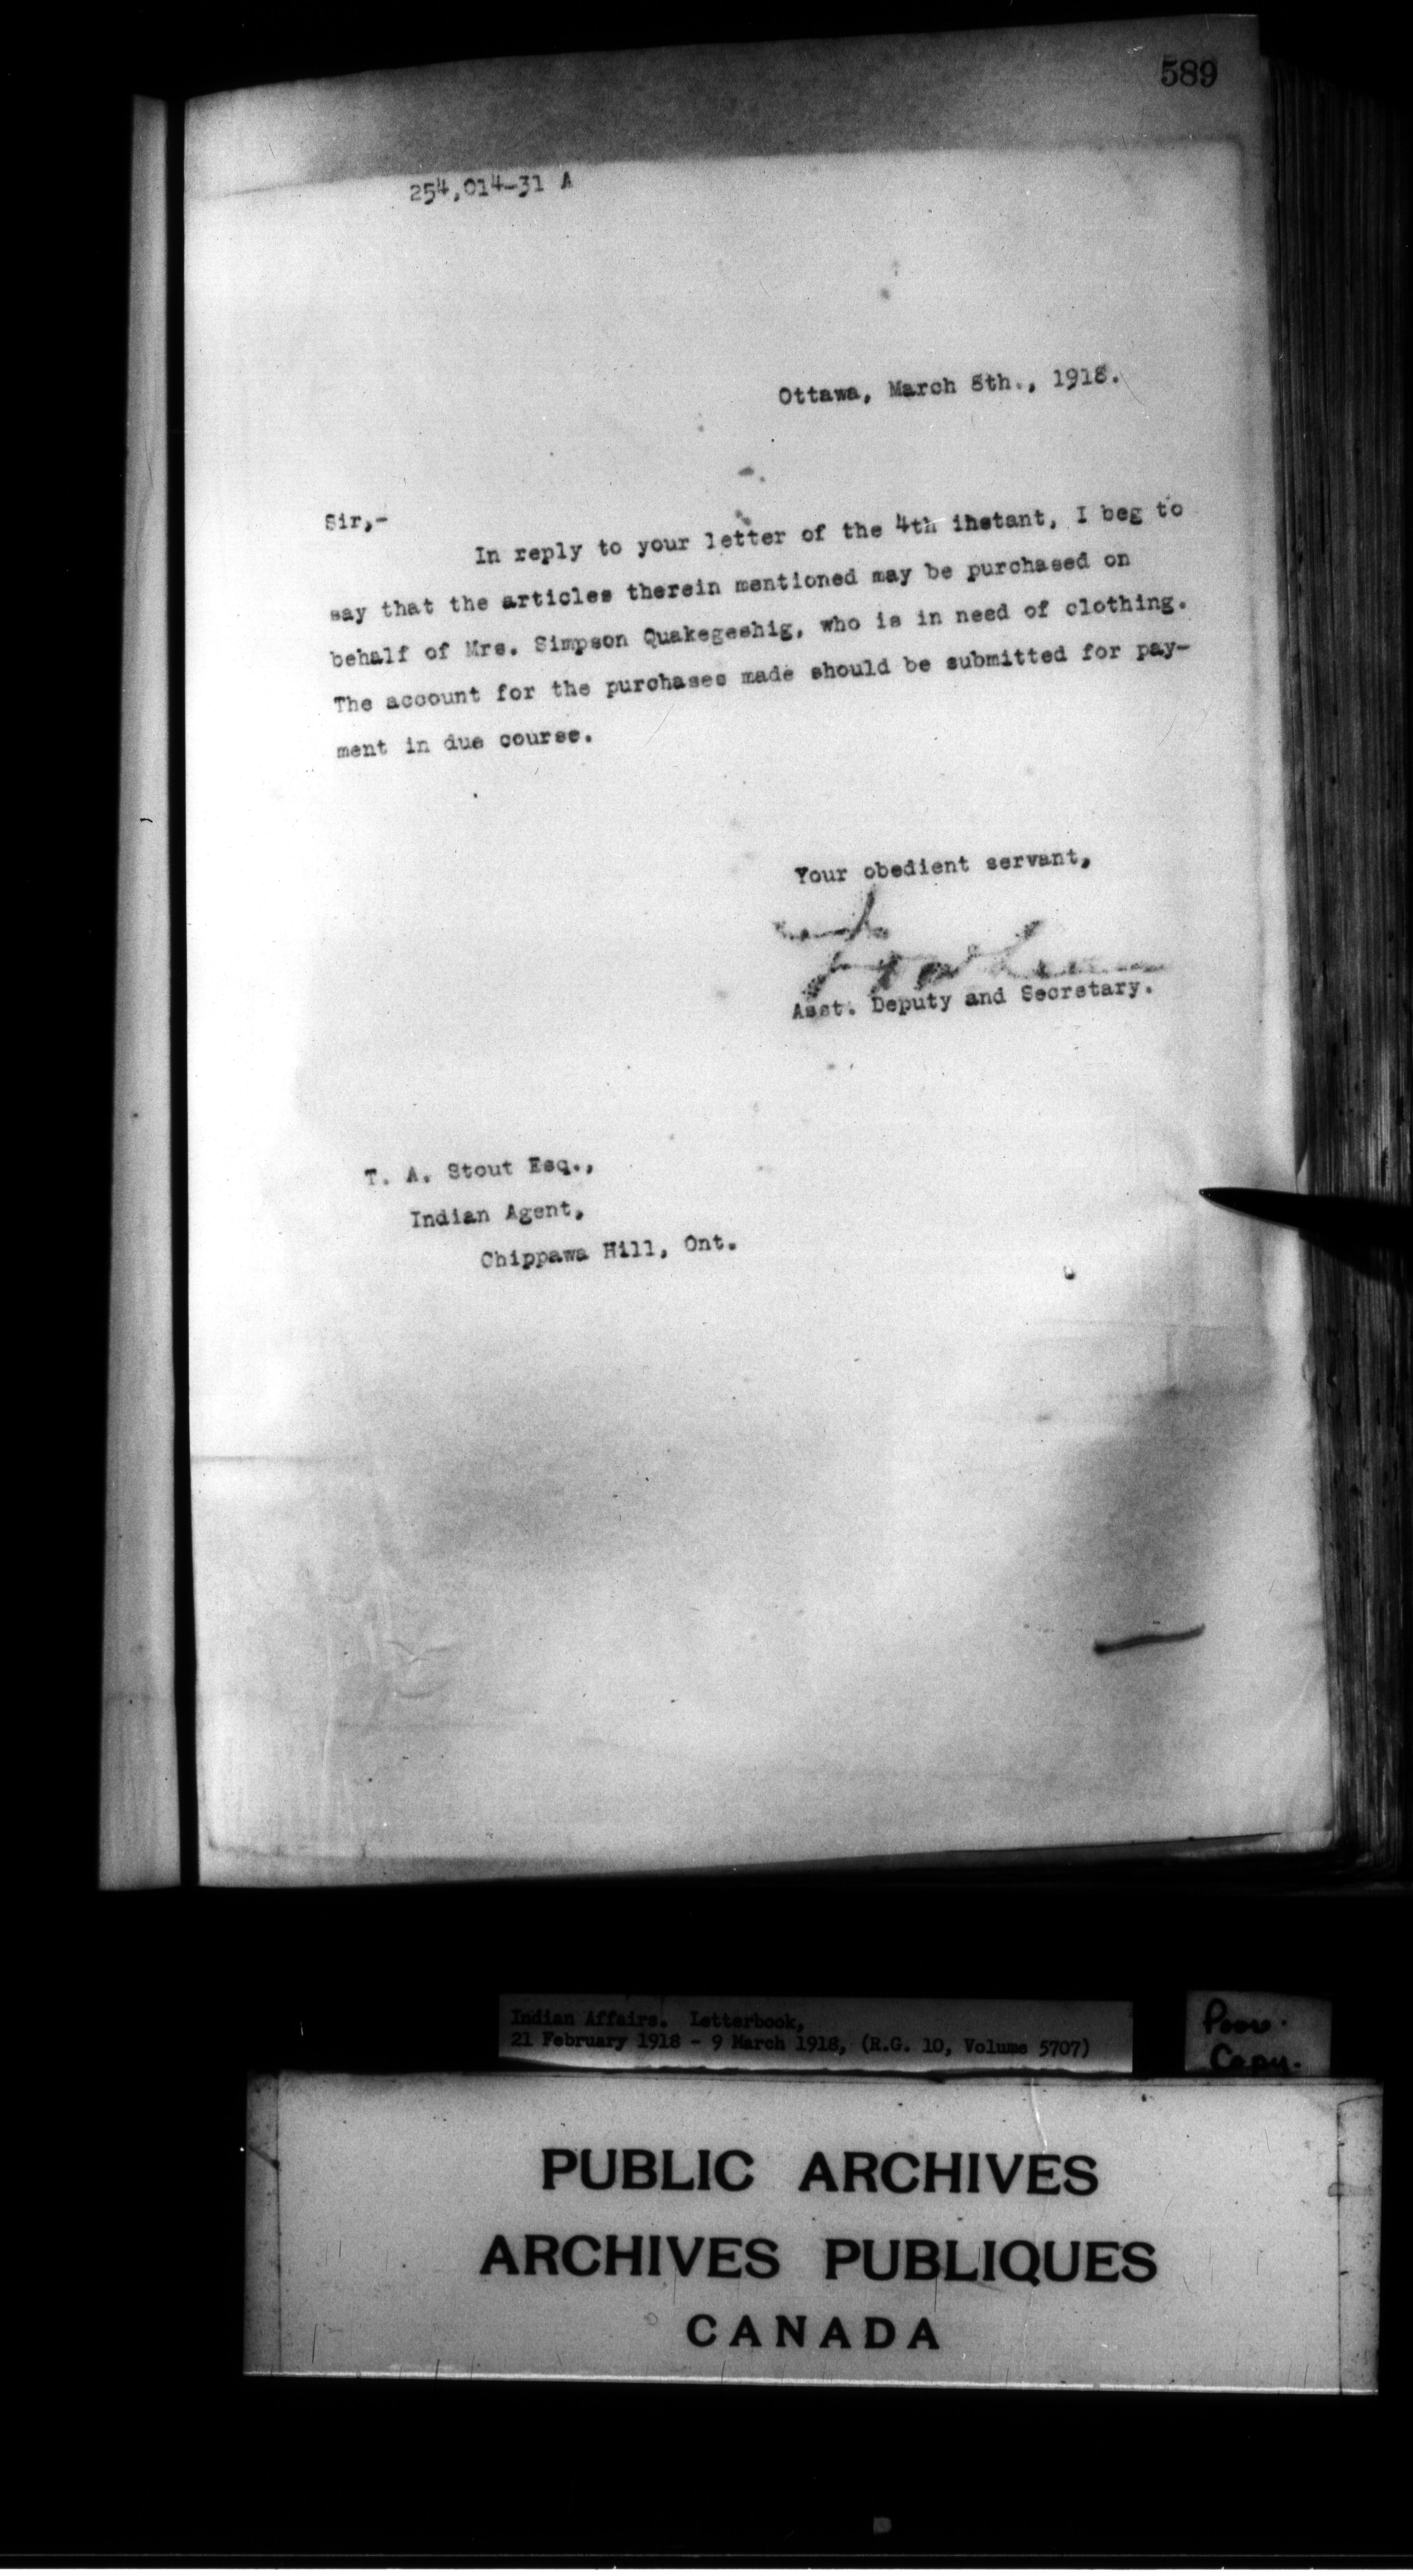 589
254,014-31 A
Ottawa, March 8th., 1918.
Sir,-
In reply to your letter of the 4th instant, I beg to
say that the articles therein mentioned may be purchased on
behalf of Mrs. Simpson Quakegeshig, who is in need of clothing.
The account for the purchases made should be submitted for pay-
ment in due course.
Your obedient servant,
Asst. Deputy and Secretary.
T. A. Stout Esq.,
Indian Agent,
Chippawa Hill, Ont.
Indian Affairs. Letterbook,
21 February 1918 - 9 March 1918, (R.G. 10, Volume 5707)
Poor
Copy.
PUBLIC ARCHIVES
ARCHIVES PUBLIQUES
CANADA